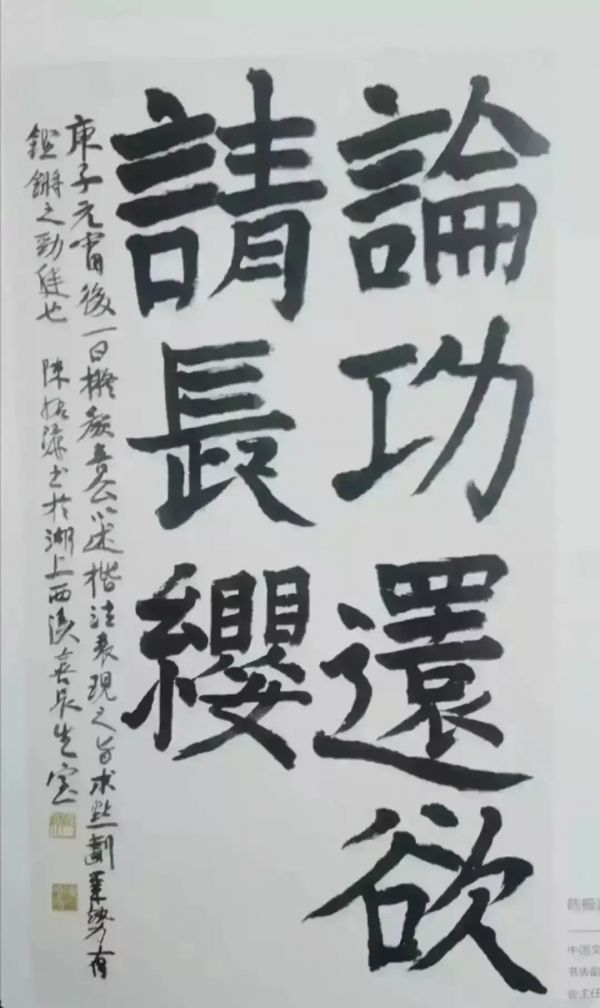 論功還欲
請長纓
庚子元宵後一日擬顏魯公以述楷法表現之旨求點劃筆勢有
鏗鏘之勁健也 陳振濂書於湖上西溪
陈振
中国文
书协副
会主任